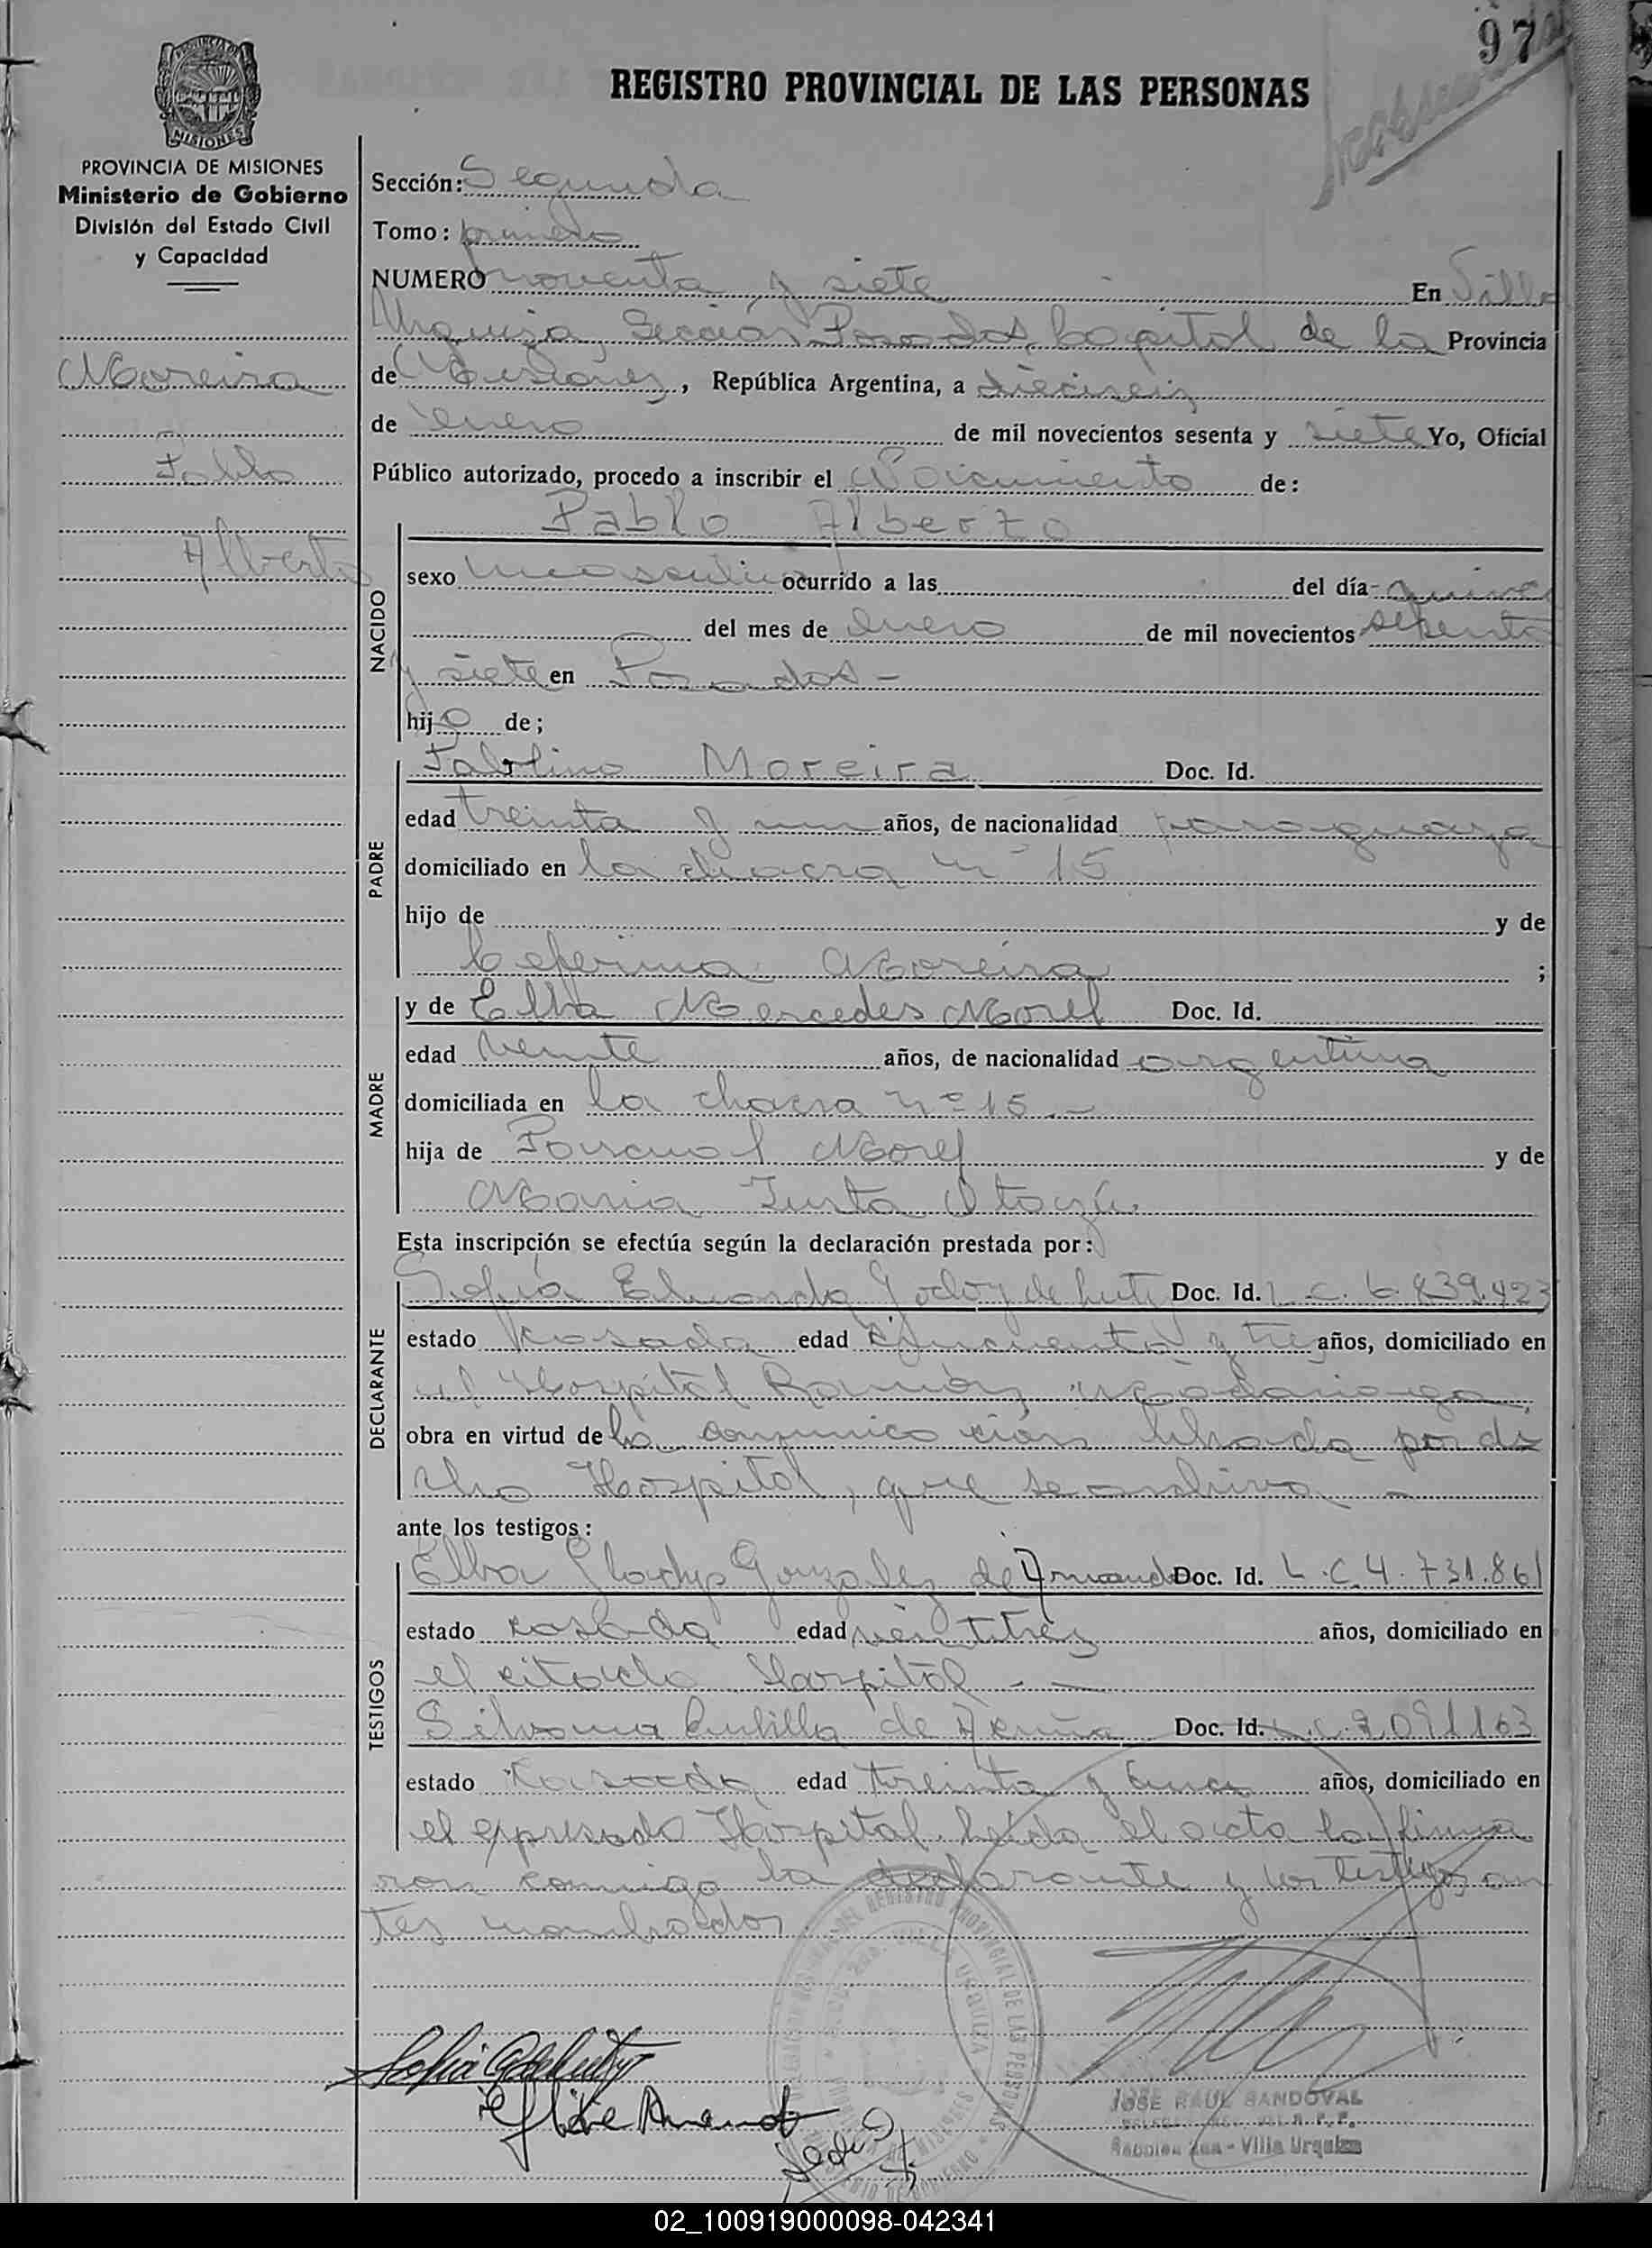 97
REGISTRO PROVINCIAL DE LAS PERSONAS
MISIONES
PROVINCIA DE MISIONES
Ministerio de Gobierno
División del Estado Civil
y Capacidad
Moreira
Pablo
Alberto
Sección: Segunda
Tomo: primero
NUMERO noventa y siete En Villa
Urquiza, Sección Posadas, Capital de la Provincia
de Misiones, República Argentina, a dieciseis
de enero de mil novecientos sesenta y siete Yo, Oficial
Público autorizado, procedo a inscribir el Nacimiento de:
Pablo Alberto
NACIDO
sexo masculino ocurrido a las del día quince
del mes de enero de mil novecientos sesenta
y siete en Posadas -
hijo de;
PADRE
Pablino Moreira Doc. Id.
edad treinta y un años, de nacionalidad paraguaya
domiciliado en la chacra nº 15
hijo de y de
Ceferina Moreira ;
MADRE
y de Elba Mercedes Morel Doc. Id.
edad veinte años, de nacionalidad argentina
domiciliada en la chacra nº 15 -
hija de Pascual Morel y de
Maria Justa
Esta inscripción se efectúa según la declaración prestada por:
DECLARANTE
Sofía Eduarda Godoy de Doc. Id. L.C. 6.839.423
estado casada edad cincuenta y tres años, domiciliado en
el Hospital Ramón Madariaga,
obra en virtud de la comunicación librada por di
cho Hospital, que se archiva -
ante los testigos:
TESTIGOS
Elba Gladys Gonzalez de Doc. Id. L.C. 4.731.861
estado casada edad veintitres años, domiciliado en
el citado Hospital -
Silvana de Acuña Doc. Id. L.C. 2.091.163
estado casada edad treinta y años, domiciliado en
el expresado Hospital. Leída el acta la firma
ron conmigo la declarante y los testigos an
tes nombrados
REGISTRO PROVINCIAL DE LAS PERSONAS
VILLA URQUIZA
JOSE RAUL SANDOVAL
Sección 2da - Villa Urquiza
02_100919000098-042341